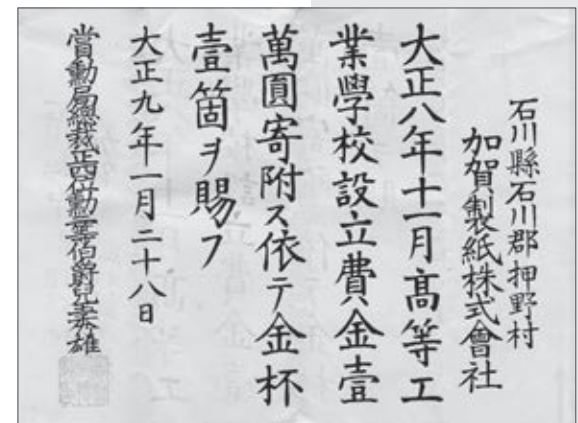 石川縣石川郡押野村
加賀製紙株式會社
大正八年十一月高等工
業學校設立費金壹
萬圓寄附ス依テ金杯
壹箇ヲ賜フ
大正九年一月二十八日
賞勳局總裁正四位勳一等伯爵兒玉秀雄